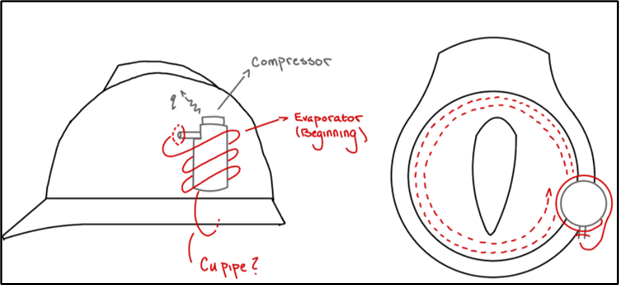 Compressor
q
Evaporator
(Beginning)
Cu pipe?